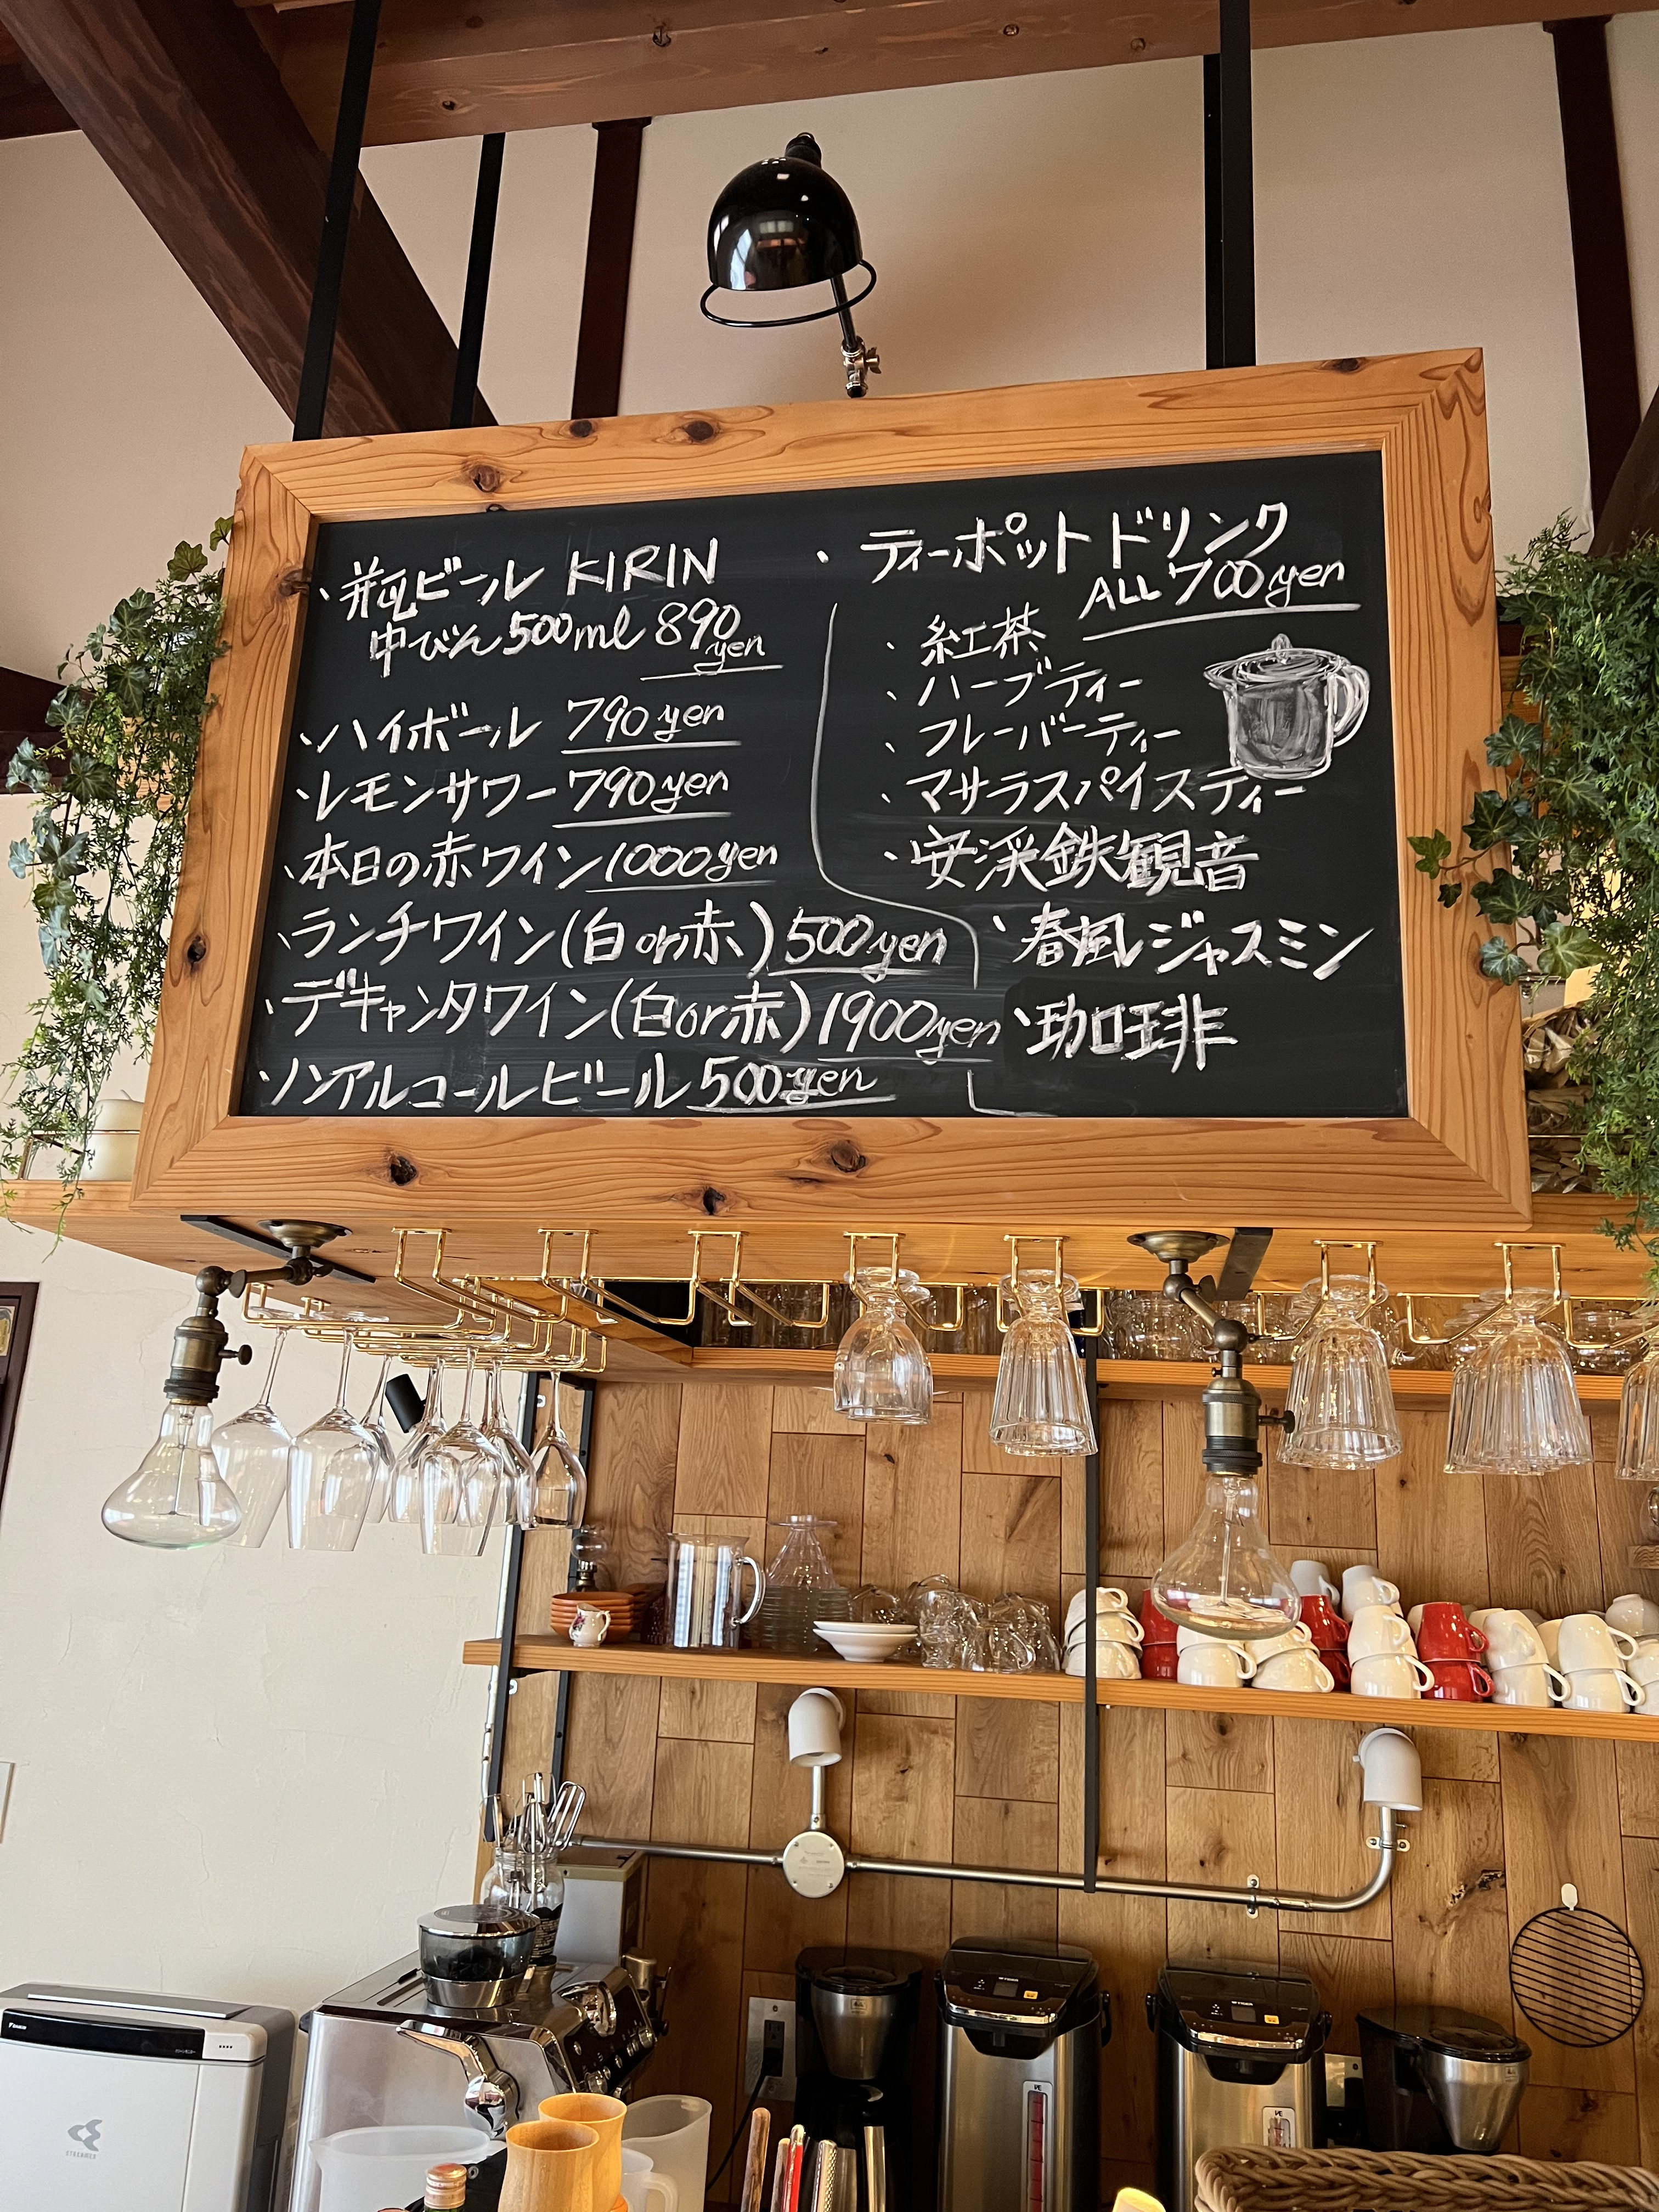 ・瓶ビール KIRIN
中びん 500ml 890
yen
・ハイボール 790yen
・レモンサワー 790yen
・本日の赤ワイン 1000yen
・ランチワイン(白or赤) 500yen
・デキャンタワイン(白or赤) 1900yen
・ノンアルコールビール 500yen
・ティーポットドリンク
ALL 700yen
・紅茶
・ハーブティー
・フレーバーティー
・マサラスパイスティー
・安渓鉄観音
・春風ジャスミン
・珈琲
STREAMER